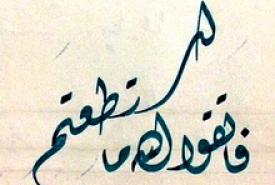 فاتقوا الله ما استطعتم